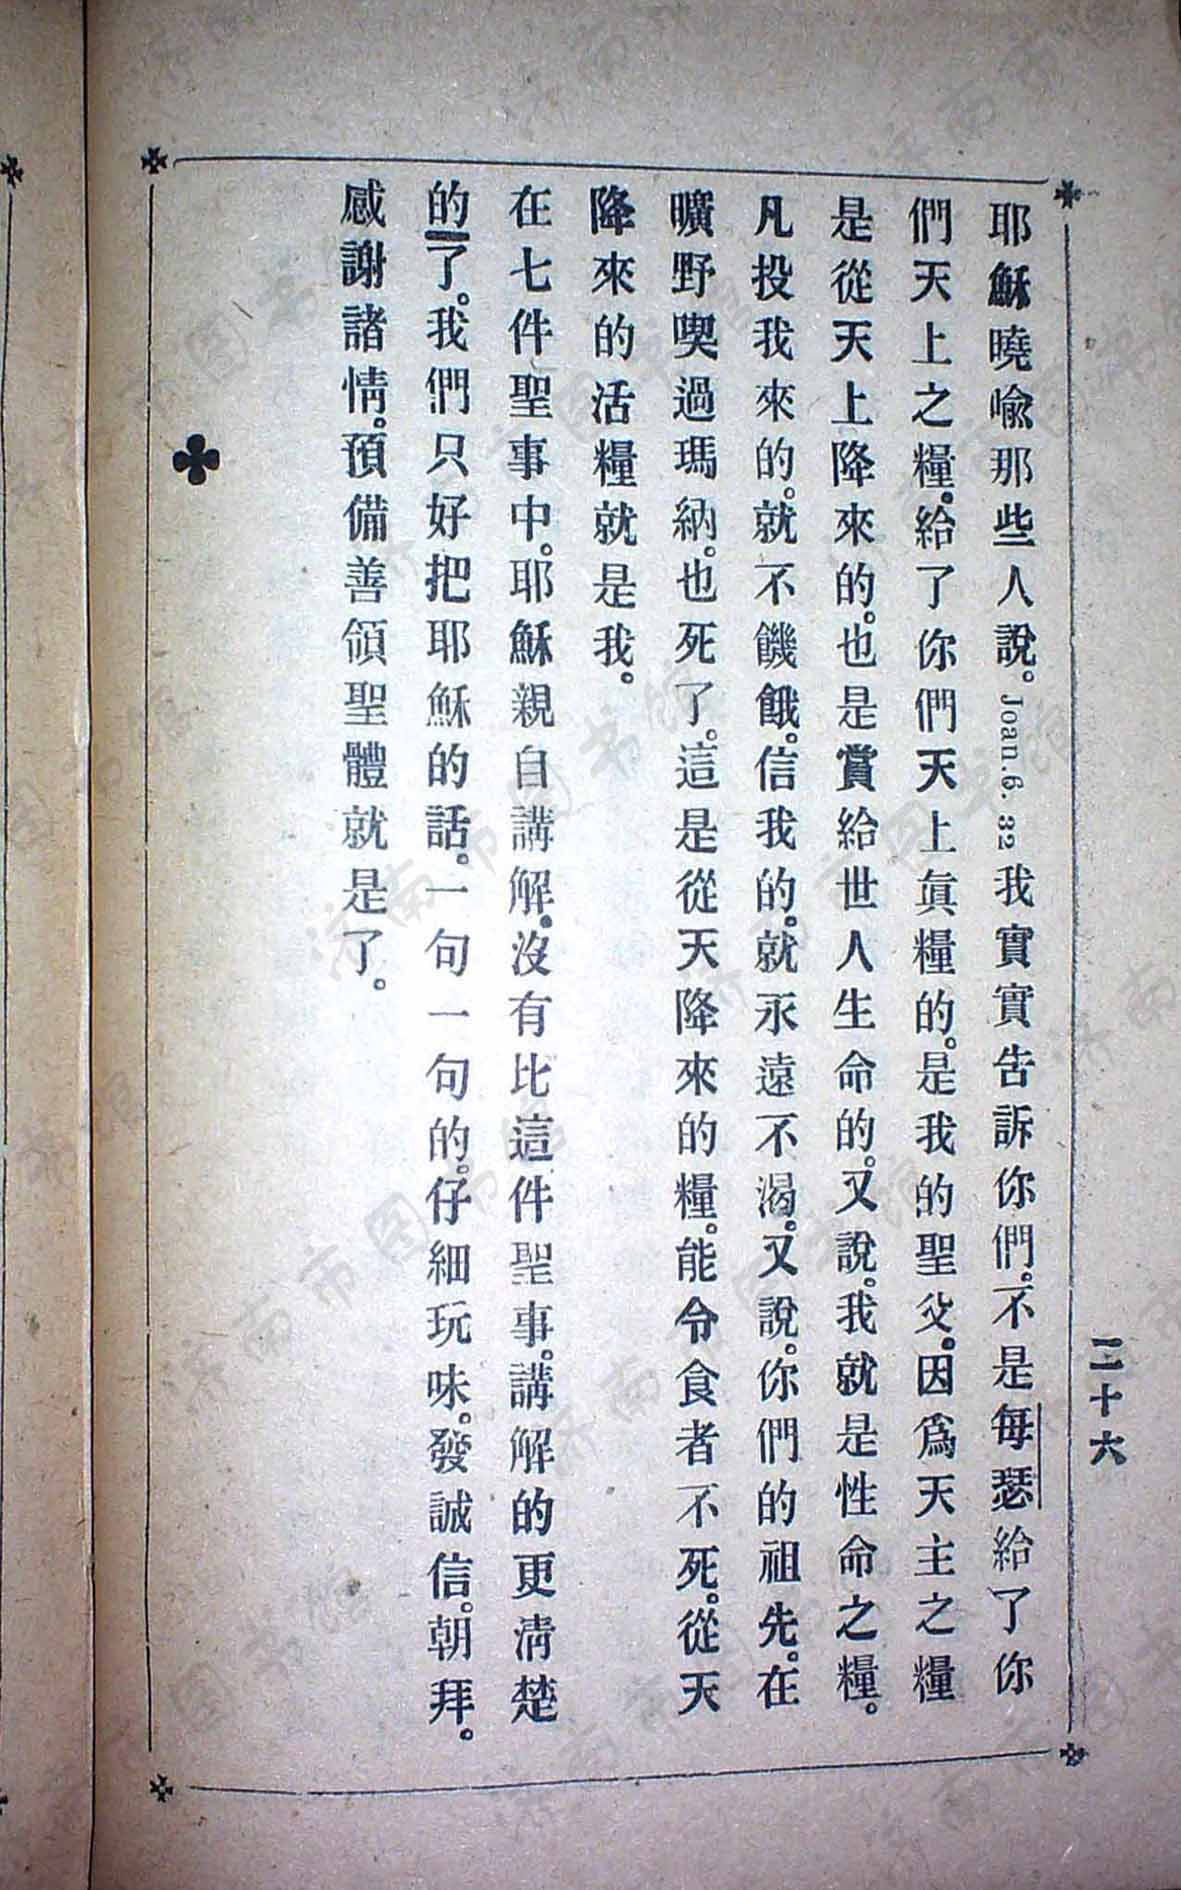 三十六
耶穌曉喩那些人說。Joan. 6. 32我實實告訴你們。不是每瑟給了你
們天上之糧。給了你們天上眞糧的。是我的聖父。因爲天主之糧
是從天上降來的。也是賞給世人生命的。又說。我就是性命之糧。
凡投我來的。就不饑餓。信我的。就永遠不渴。又說。你們的祖先。在
曠野喫過瑪納。也死了。這是從天降來的糧。能令食者不死。從天
降來的活糧就是我。
在七件聖事中。耶穌親自講解。沒有比這件聖事。講解的更淸楚
的了。我們只好把耶穌的話。一句一句的。仔細玩味。發誠信。朝拜。
感謝諸情。預備善領聖體就是了。
济南市图书馆